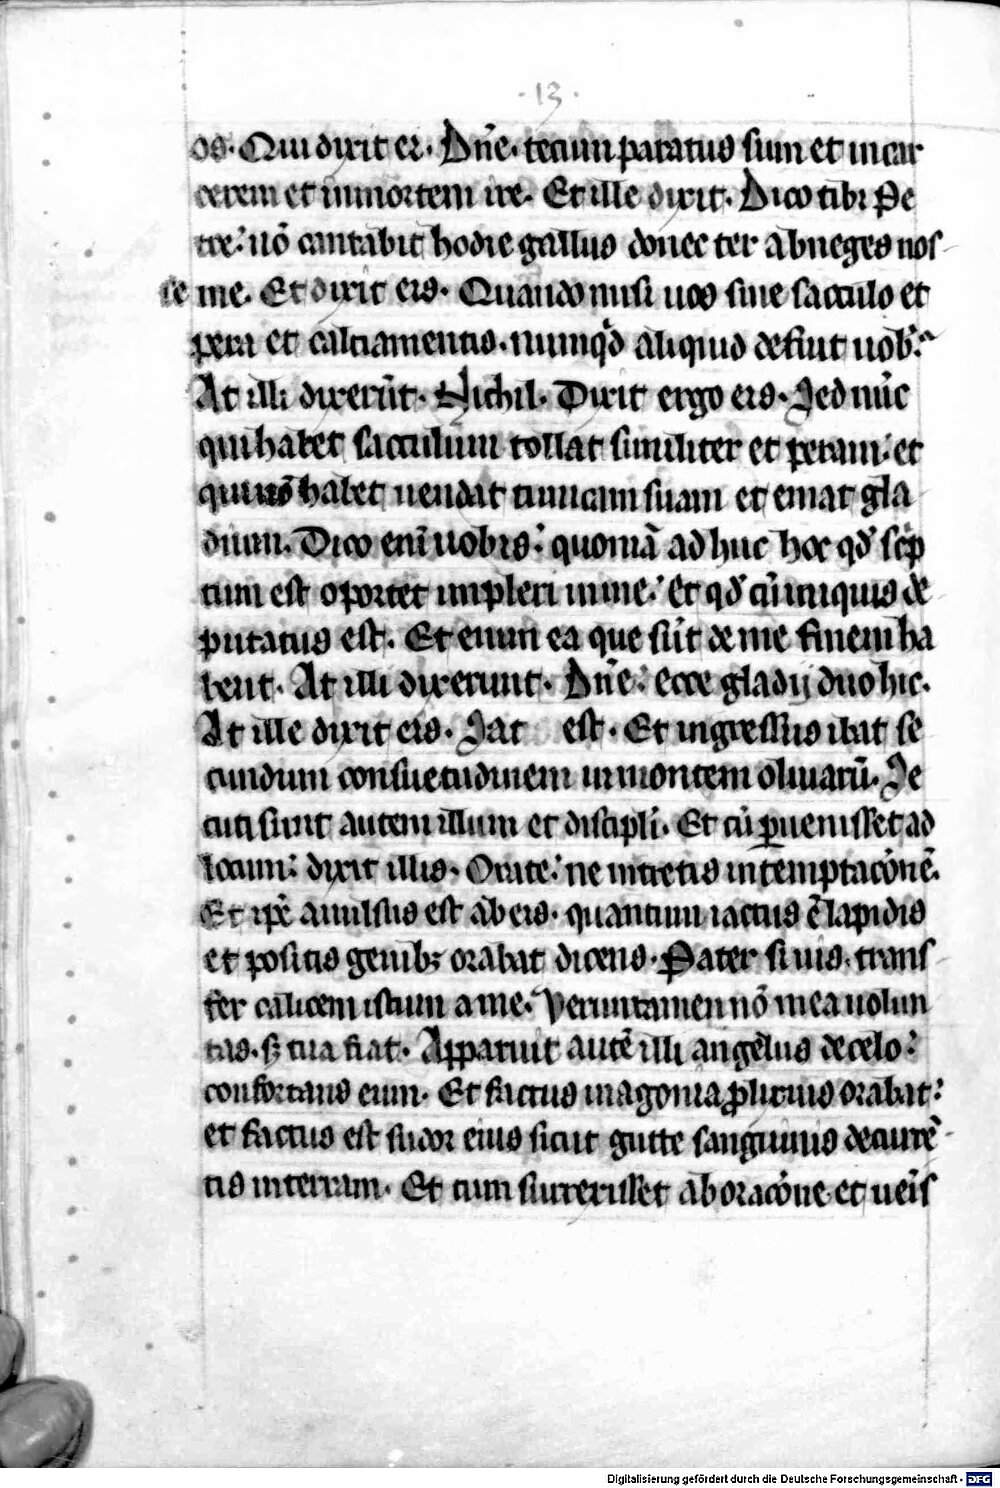 ·13·
os. Qui dixit ei. Dn̄e. tecum paratus sum et in car
cerem et in mortem ire. Et ille dixit. Dico tibi Pe
tre: nō cantabit hodie gallus donec ter abneges nos-
se me. Et dixit eis. Quando misi uos sine sacculo et
pera et calciamentis. numqd aliquid defuit uob.
At illi dixerūt. Nichil. Dixit ergo eis. Sed nūc
qui habet sacculum tollat similiter et peram: et
qui nō habet uendat tunicam suam et emat gla
dium. Dico enī uobis: quoniā ad huc hoc qd scp
tum est oportet impleri in me: Et qd cū iniquis de
putatus est. Et enim ea que sūt de me finem ha
bent. At illi dixerunt. Dn̄e: ecce gladij duo hic.
At ille dixit eis. Sat est. Et ingressus ibat se
cundum consuetudinem in montem oliuarū. Se
cuti sunt autem illum et discipli. Et cū ꝑuenisset ad
locum: dixit illis. Orate: ne intretis in temptacōnē.
Et ipē auulsus est ab eis. quantum iactus ē lapidis
et positis genibꝫ orabat dicens. Pater si uis. trans-
fer calicem istum a me. Veruntamen nō mea uolun
tas. sꝫ tua fiat. Apparuit autē illi angelus de celo:
confortans eum. Et factus in agonia ꝓlixius orabat:
et factus est sudor eius sicut gutte sanguinis decurrē-
tis in terram. Et cum surrexisset ab oracōne et uenis
Digitalisierung gefördert durch die Deutsche Forschungsgemeinschaft - DFG